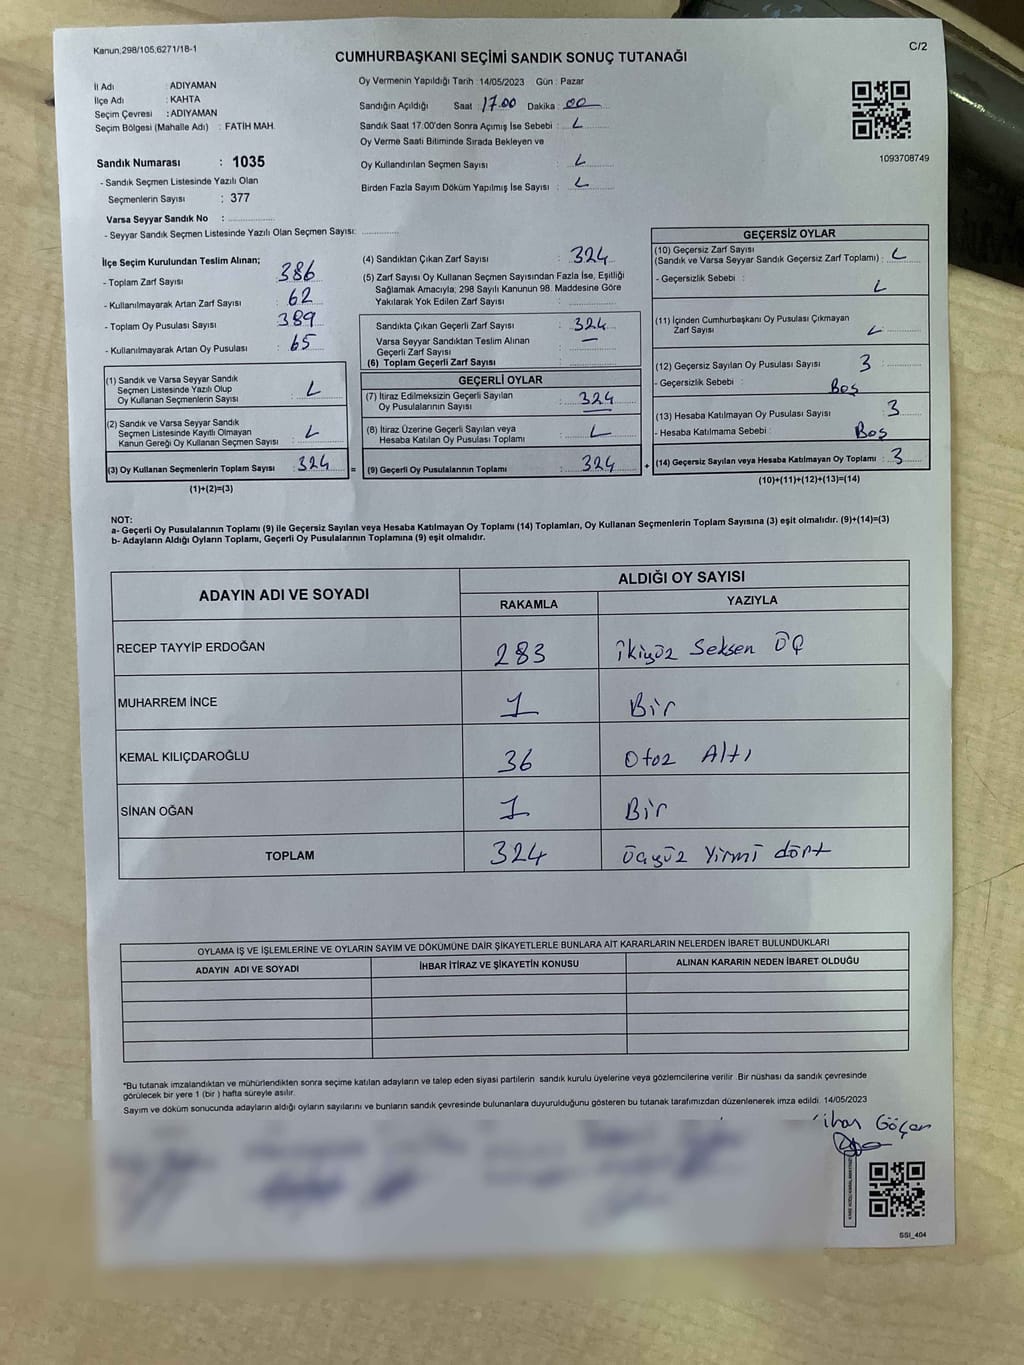 Kanun;298/105,6271/18-1
C/2
CUMHURBAŞKANI SEÇİMİ SANDIK SONUÇ TUTANAĞI
İl Adı : ADIYAMAN
İlçe Adı : KAHTA
Seçim Çevresi : ADIYAMAN
Seçim Bölgesi (Mahalle Adı) : FATİH MAH.
Sandık Numarası : 1035
- Sandık Seçmen Listesinde Yazılı Olan
Seçmenlerin Sayısı : 377
Varsa Seyyar Sandık No :
- Seyyar Sandık Seçmen Listesinde Yazılı Olan Seçmen Sayısı:
Oy Vermenin Yapıldığı Tarih : 14/05/2023 Gün : Pazar
Sandığın Açıldığı Saat : 17.00 Dakika : 00
Sandık Saat 17.00'den Sonra Açımış İse Sebebi :
Oy Verme Saati Bitiminde Sırada Bekleyen ve
Oy Kullandırılan Seçmen Sayısı
Birden Fazla Sayım Döküm Yapılmış İse Sayısı :
1093708749
İlçe Seçim Kurulundan Teslim Alınan;
- Toplam Zarf Sayısı : 386
- Kullanılmayarak Artan Zarf Sayısı : 62
- Toplam Oy Pusulası Sayısı : 389
- Kullanılmayarak Artan Oy Pusulası : 65
(1) Sandık ve Varsa Seyyar Sandık
Seçmen Listesinde Yazılı Olup
Oy Kullanan Seçmenlerin Sayısı
(2) Sandık ve Varsa Seyyar Sandık
Seçmen Listesinde Kayıtlı Olmayan
Kanun Gereği Oy Kullanan Seçmen Sayısı
(3) Oy Kullanan Seçmenlerin Toplam Sayısı : 324
(1)+(2)=(3)
(4) Sandıktan Çıkan Zarf Sayısı : 324
(5) Zarf Sayısı Oy Kullanan Seçmen Sayısından Fazla İse, Eşitliği
Sağlamak Amacıyla; 298 Sayılı Kanunun 98. Maddesine Göre
Yakılarak Yok Edilen Zarf Sayısı :
Sandıkta Çıkan Geçerli Zarf Sayısı : 324
Varsa Seyyar Sandıktan Teslim Alınan
Geçerli Zarf Sayısı : —
(6) Toplam Geçerli Zarf Sayısı :
GEÇERLİ OYLAR
(7) İtiraz Edilmeksizin Geçerli Sayılan
Oy Pusulalarının Sayısı : 324
(8) İtiraz Üzerine Geçerli Sayılan veya
Hesaba Katılan Oy Pusulası Toplamı :
= (9) Geçerli Oy Pusulalarının Toplamı : 324
GEÇERSİZ OYLAR
(10) Geçersiz Zarf Sayısı
(Sandık ve Varsa Seyyar Sandık Geçersiz Zarf Toplamı) :
- Geçersizlik Sebebi :
(11) İçinden Cumhurbaşkanı Oy Pusulası Çıkmayan
Zarf Sayısı :
(12) Geçersiz Sayılan Oy Pusulası Sayısı : 3
- Geçersizlik Sebebi : Boş
(13) Hesaba Katılmayan Oy Pusulası Sayısı : 3
- Hesaba Katılmama Sebebi : Boş
+ (14) Geçersiz Sayılan veya Hesaba Katılmayan Oy Toplamı : 3
(10)+(11)+(12)+(13)=(14)
NOT:
a- Geçerli Oy Pusulalarının Toplamı (9) ile Geçersiz Sayılan veya Hesaba Katılmayan Oy Toplamı (14) Toplamları, Oy Kullanan Seçmenlerin Toplam Sayısına (3) eşit olmalıdır. (9)+(14)=(3)
b- Adayların Aldığı Oyların Toplamı, Geçerli Oy Pusulalarının Toplamına (9) eşit olmalıdır.
ADAYIN ADI VE SOYADI
ALDIĞI OY SAYISI
RAKAMLA YAZIYLA
RECEP TAYYİP ERDOĞAN 283 İkiyüz Seksen ÜÇ
MUHARREM İNCE 1 Bir
KEMAL KILIÇDAROĞLU 36 Otuz Altı
SİNAN OĞAN 1 Bir
TOPLAM 324 Üçyüz Yirmi dört
OYLAMA İŞ VE İŞLEMLERİNE VE OYLARIN SAYIM VE DÖKÜMÜNE DAİR ŞİKAYETLERLE BUNLARA AİT KARARLARIN NELERDEN İBARET BULUNDUKLARI
ADAYIN ADI VE SOYADI İHBAR İTİRAZ VE ŞİKAYETİN KONUSU ALINAN KARARIN NEDEN İBARET OLDUĞU
*Bu tutanak imzalandıktan ve mühürlendikten sonra seçime katılan adayların ve talep eden siyasi partilerin sandık kurulu üyelerine veya gözlemcilerine verilir. Bir nüshası da sandık çevresinde
görülecek bir yere 1 (bir ) hafta süreyle asılır.
Sayım ve döküm sonucunda adayların aldığı oyların sayılarını ve bunların sandık çevresinde bulunanlara duyurulduğunu gösteren bu tutanak tarafımızdan düzenlenerek imza edildi. 14/05/2023
SSI_404